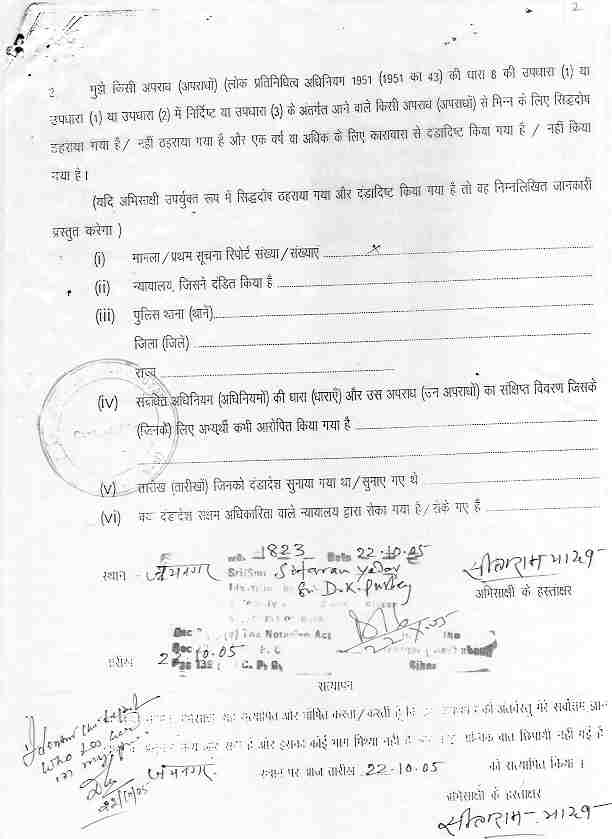 2
2. मुझे किसी अपराध (अपराधों) (लोक प्रतिनिधित्व अधिनियम 1951 (1951 का 43) की धारा 8 की उपधारा (1) या
उपधारा (1) या उपधारा (2) में निर्दिष्ट या उपधारा (3) के अंतर्गत आने वाले किसी अपराध (अपराधों) से भिन्न के लिए सिद्धदोष
ठहराया गया है / नहीं ठहराया गया है और एक वर्ष या अधिक के लिए कारावास से दंडादिष्ट किया गया है / नहीं किया
गया है।
(यदि अभिसाक्षी उपर्युक्त रूप में सिद्धदोष ठहराया गया और दंडादिष्ट किया गया है तो वह निम्नलिखित जानकारी
प्रस्तुत करेगा )
(i) मामला / प्रथम सूचना रिपोर्ट संख्या / संख्याएं
(ii) न्यायालय, जिसने दंडित किया है
(iii) पुलिस थाना (थाने)
जिला (जिले)
राज्य
(iv) संबंधित अधिनियम (अधिनियमों) की धारा (धाराएँ) और उस अपराध (उन अपराधों) का संक्षिप्त विवरण जिसके
(जिनके) लिए अभ्यर्थी कभी आरोपित किया गया है
(v) तारीख (तारीखों) जिनको दंडादेश सुनाया गया था / सुनाए गए थे
(vi) क्या दंडादेश सक्षम अधिकारिता वाले न्यायालय द्वारा रोका गया है / रोके गए हैं
No. 1823 Date 22.10.05
स्थान - जयनगर Sri/Smt Sitaram Yadav सीताराम यादव
Sri D.K. अभिसाक्षी के हस्ताक्षर
The Notaries Act 22/X/05
तारीख 22.10.05
Bihar
सत्यापन
सत्यापित और घोषित करता / करती हूं कि की अंतर्वस्तु मेरे सर्वोत्तम ज्ञान
Who has
है और इसका कोई भाग मिथ्या नहीं है बात छिपायी नहीं गई है
जयनगर स्थान पर आज तारीख 22-10-05 को सत्यापित किया ।
22/X/05
अभिसाक्षी के हस्ताक्षर
सीताराम यादव